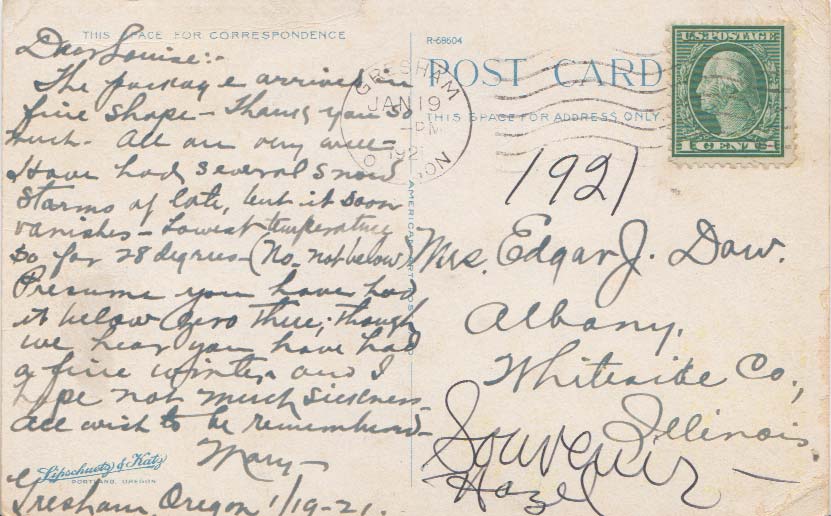 THIS SPACE FOR CORRESPONDENCE
Dear Louise:-
The package arrived in
fine shape - Thank you so
much - All are very well -
Have had several snow
storms of late, but it soon
vanishes - Lowest temperature
so far 28 degrees - (No, not below)
Presume you have had
it below zero there; though
we hear you have had
a fine winter, and I
hope not much sickness -
All wish to be remembered -
Mary -
Gresham, Oregon 1/19-21.
Lipschuetz & Katz
PORTLAND, OREGON
R-68604
POST CARD
THIS SPACE FOR ADDRESS ONLY
GRESHAM
JAN 19
-PM
1921
U.S. POSTAGE
1 CENT 1
1921
Mrs. Edgar J. Daw.
Albany,
Whiteside Co.,
Illinois.
Souvenir -
Hazel